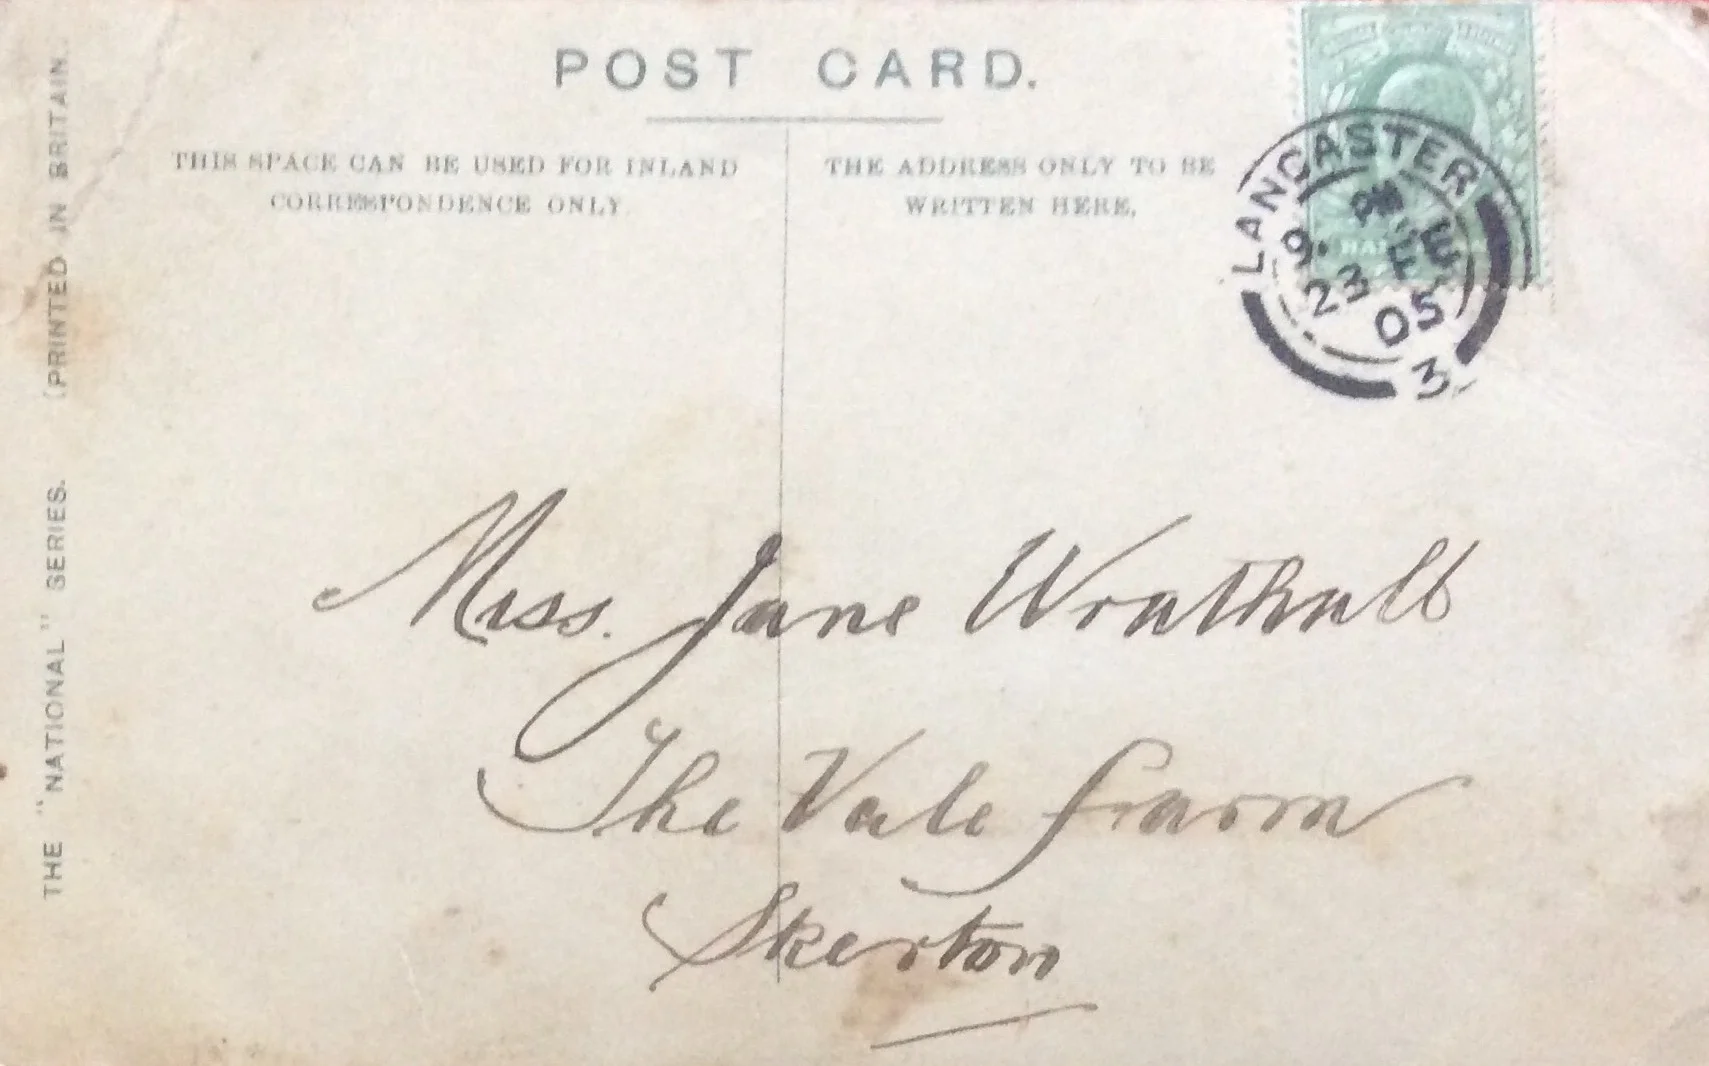 POST CARD.
THIS SPACE CAN BE USED FOR INLAND
CORRESPONDENCE ONLY.
THE ADDRESS ONLY TO BE
WRITTEN HERE.
LANCASTER
9.
23 FE
05
3
Miss. Jane Wrathall
The Vale Farm
Skerton
THE "NATIONAL" SERIES. (PRINTED IN BRITAIN.